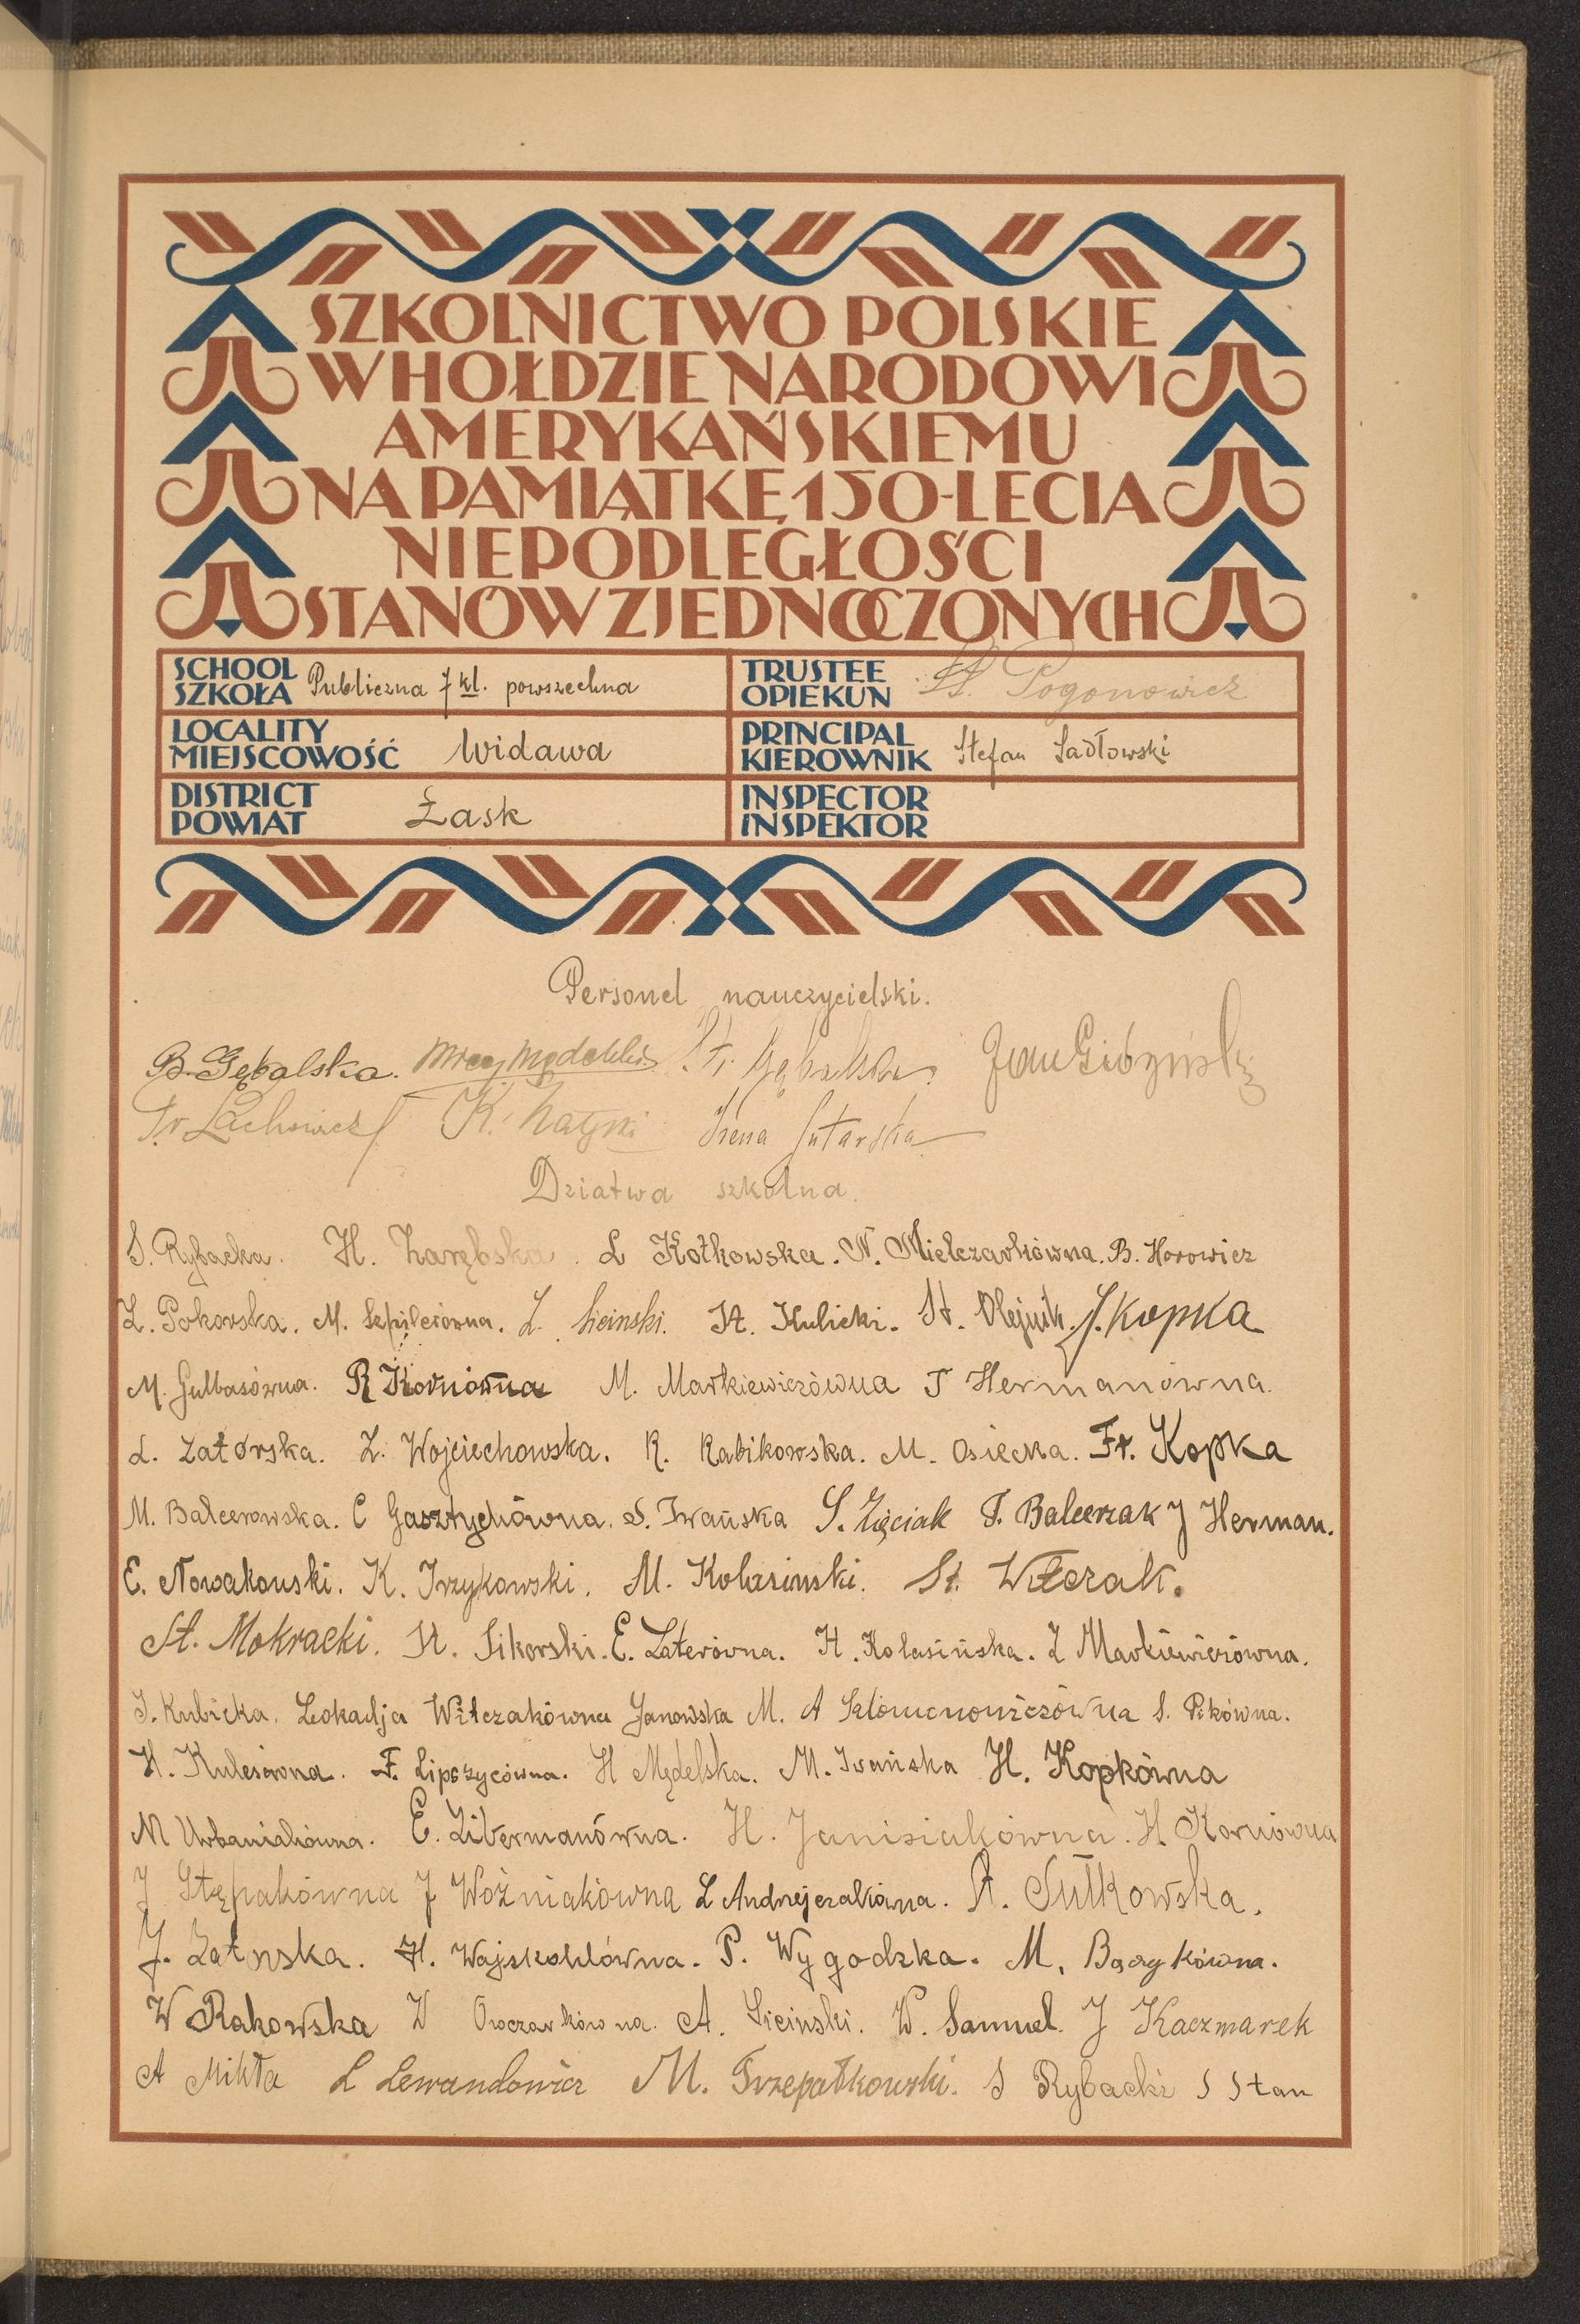 SZKOLNICTWO POLSKIE
W HOŁDZIE NARODOWI
AMERYKAŃSKIEMU
NA PAMIĄTKĘ 150-LECIA
NIEPODLEGŁOŚCI
STANÓW ZJEDNOCZONYCH
SCHOOL
SZKOŁA Publiczna 7 kl. powszechna
TRUSTEE
OPIEKUN St. Pogonowicz
LOCALITY
MIEJSCOWOŚĆ Widawa
PRINCIPAL
KIEROWNIK Stefan Sadłowski
DISTRICT
POWIAT Łask
INSPECTOR
INSPEKTOR
Personel nauczycielski.
B. Gębalska. St. Gębalska.
Fr. Lachowicz K. Irena
Dziatwa szkolna.
S. Rybacka. H. Zarębska. L Kotkowska. N. Mielczarkówna. B. Horowicz
Z. Pokorska. M. Szpilerówna. Z. Siciński. St. Kulicki. St. Olejnik. J. Kopka
M. Gulbasówna. R Kornówna M. Markiewiczówna T Hermanówna.
L. Zatorska. Z. Wojciechowska. R. Rabikowska. M. Osiecka. Fr. Kopka
M. Balcerowska. C Gasztychówna. S. Iwańska S. Zięciak F. Balcerzak J Herman.
E. Nowakowski. K. Irzykowski. M. Kolasinski. St. Witczak.
St. Mokracki. St. Sikorski. E. Laterówna. H. Kolasińska. Z Markiewiczówna.
J. Kubicka. Leokadja Witczakówna Janowska M. A Szlomonowiczówna S. Pikówna.
H. Kulesówna. F. Lipszycówna. H Mędelska. M. Iwańska H. Kopkówna
M Urbaniakówna. E. Libermanówna. H. Janisiakówna. H Kornówna
J Stępakówna J Woźniakówna L Andrzejczakówna. A. Sutkowska.
J. Zatorska. H. Wajskohlówna. P. Wygodzka. M. Bączykówna.
W Rakowska W Owczarkówna. A. Siciński. W. Samuel. J Kaczmarek
A Mikła L Lewandowicz M. Trzepałkowski. S Rybacki S Stan